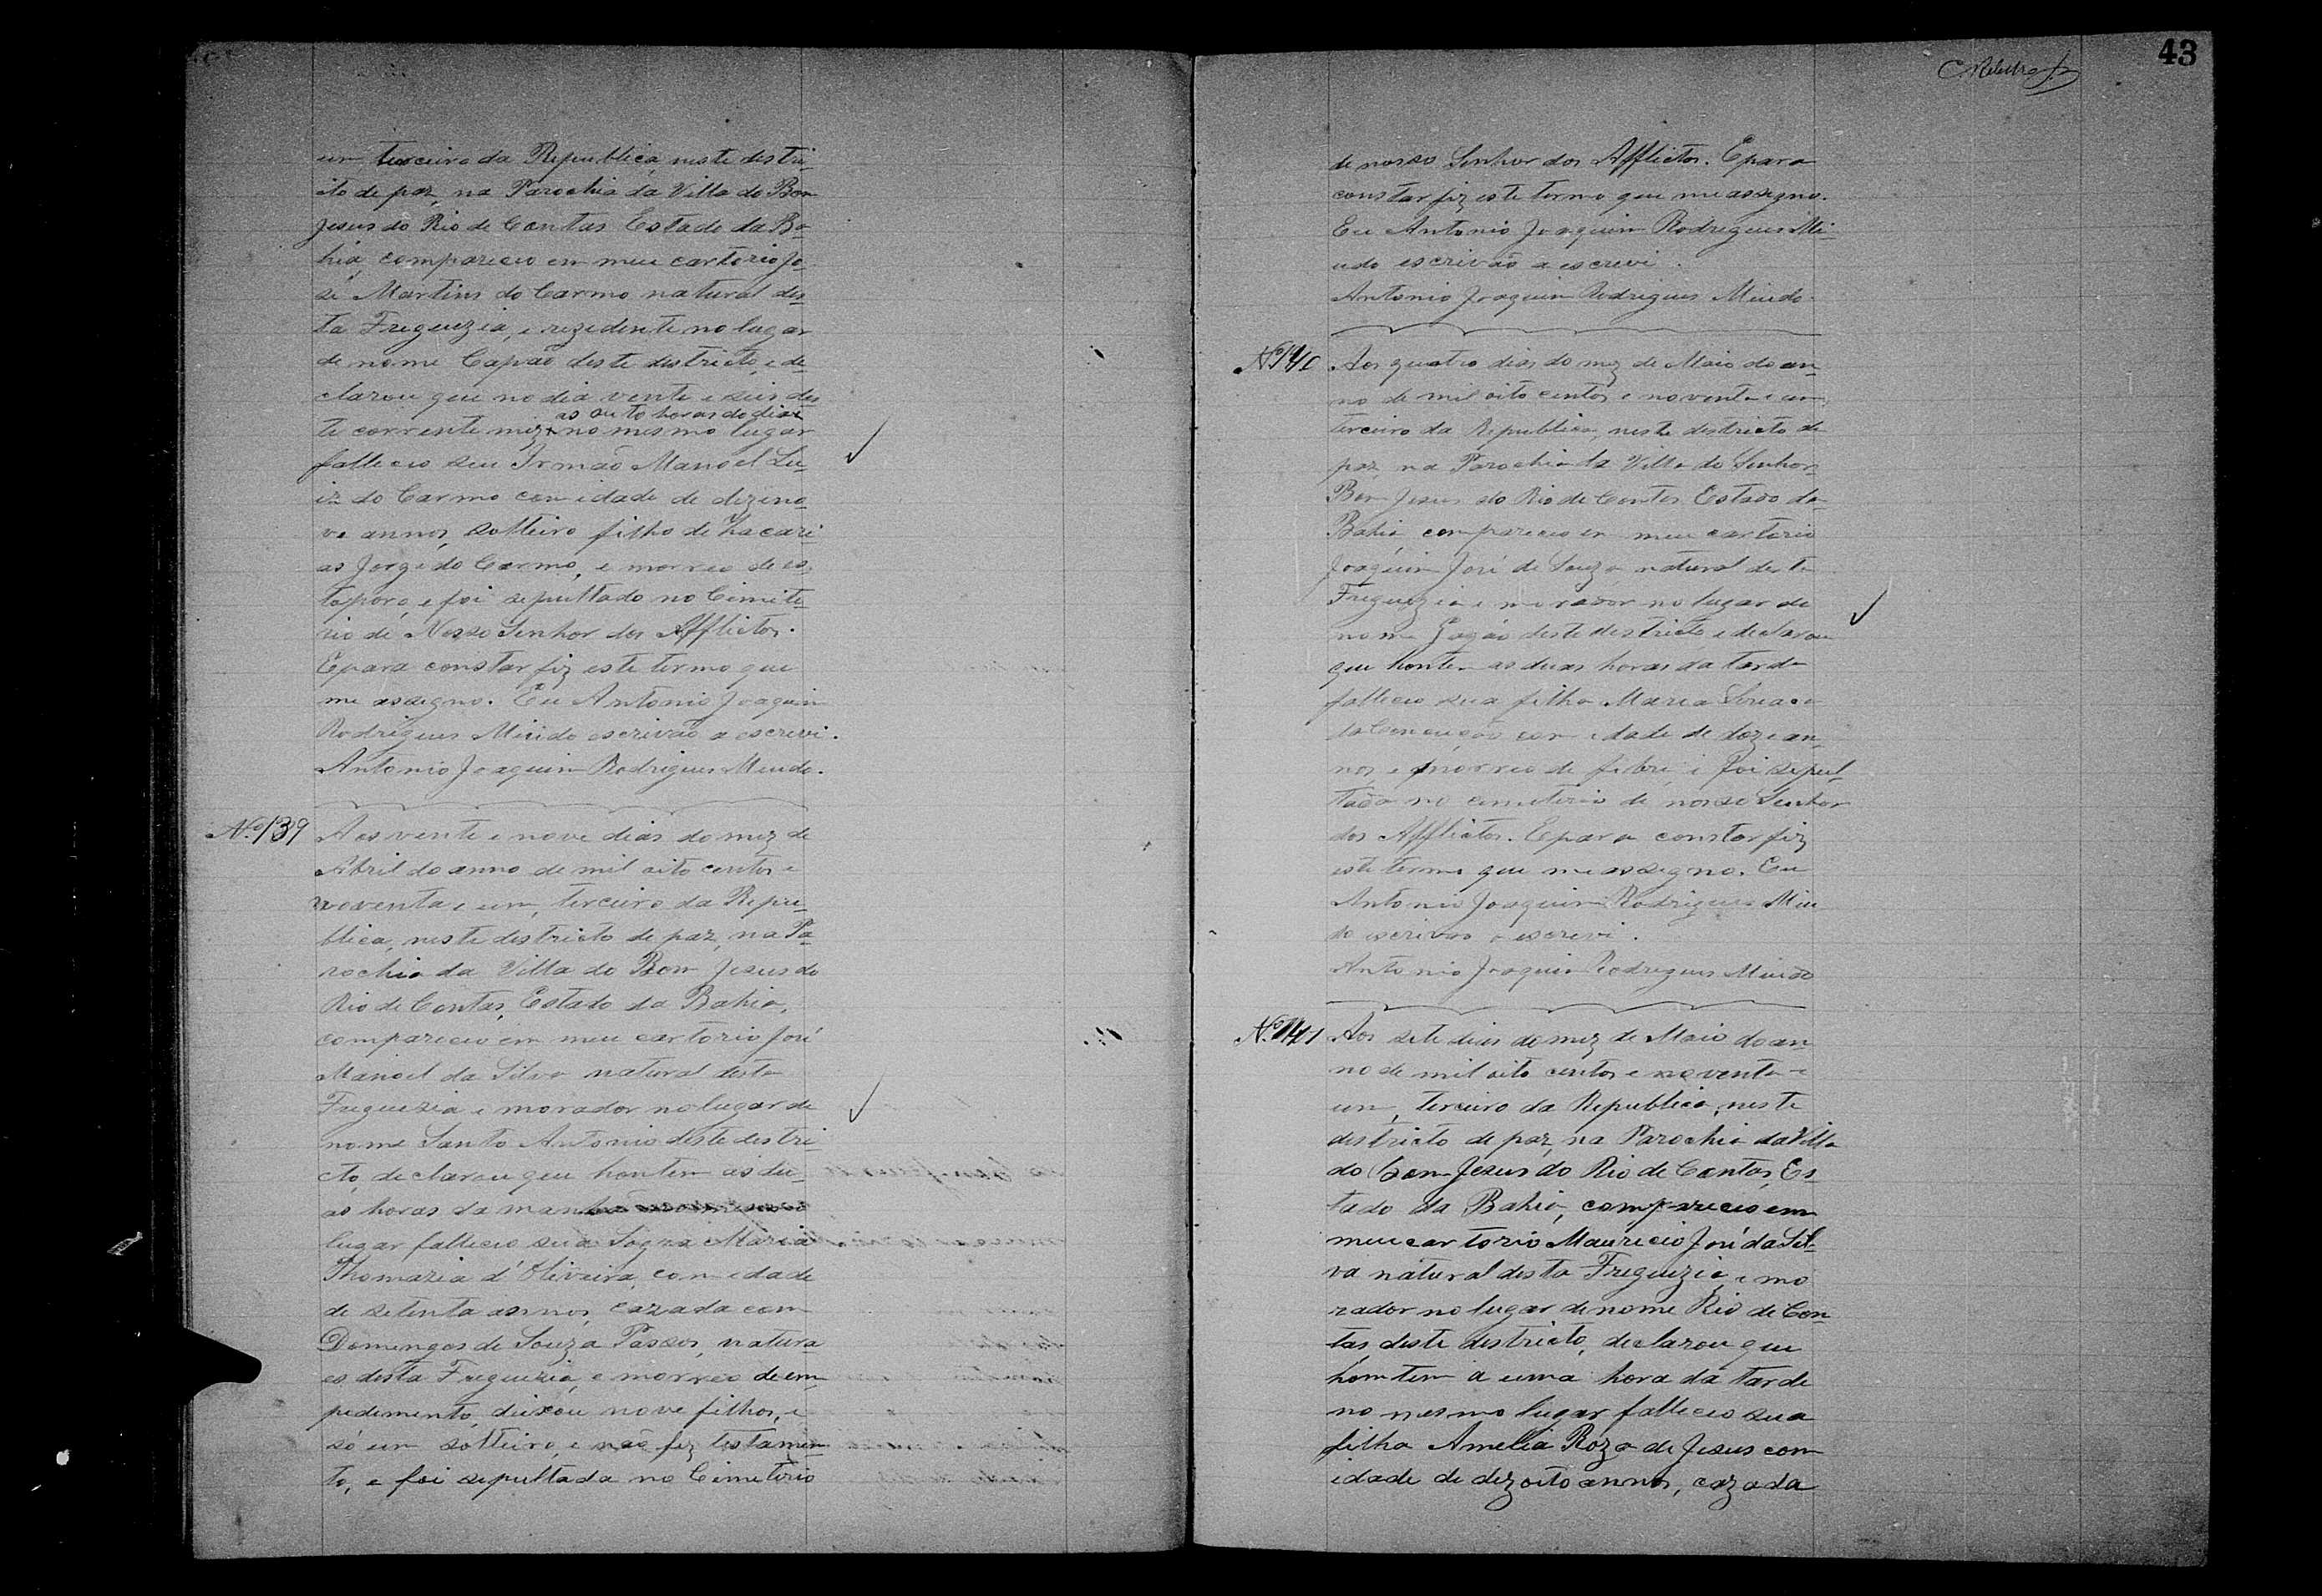 um terceiro da Republica, neste distri-
cto de paz, na Parochia da Villa do Bom
Jesus do Rio de Contas Estado da Ba-
hia, compareceo em meu cartorio Jo-
sé Martins do Carmo natural des-
ta Freguezia, e rezidente no lugar
de nome Capão deste districto, e de-
clarou que no dia vente e seis des
as outo horas do dia
te corrente mez x no mesmo lugar
falleceo seu Irmaõ Manoel Lu-
iz do Carmo com idade de dezeno-
ve annos, solteiro filho de Zacari-
as Jorge do Carmo, e morreo de es-
toporo, e foi sepultado no Cimite-
rio de Nosso Senhor dos Afflictos.
E para constar fiz este termo que
me assegno. Eu Antonio Joaquim
Rodrigues Miudo escrivaõ a escrevi.
Antonio Joaquim Rodrigues Miudo.
Nº 139 Aos vente e nove dias do mez de
Abril do anno de mil oito centos e
noventa e um, terceiro da Repu-
blica, neste destricto de paz, na Pa-
rochia da Villa do Bom Jesus do
Rio de Contas, Estado da Bahia,
compareceo em meu cartorio José
Manoel da Silva natural desta
Freguesia e morador no lugar de
nome Santo Antonio deste destri-
cto, declarou que hontem as du-
as horas da manhã
lugar falleceo sua Sogra Maria
Thomazia d'Oliveira, com idade
de setenta annos, cazada com
Domingos de Souza Passos, natura-
es desta Freguezia, e morreo de em-
pedemento, deixou nove filhos, e
só um solteiro, e naõ fez testamen-
to, e foi sepultada no Cimeterio
43
de nosso Senhor dos Afflictos. E para
constar fiz este termo que me assegno.
Eu Antonio Joaquim Rodrigues Mi-
udo escrivaõ a escrevi.
Antonio Joaquim Rodrigues Miudo.
Nº 140 Aos quatro dias do mez de Maio do an-
no de mil oito centos e noventa e um,
terceiro da Republica, neste destricto de
paz, na Parochia da Villa do Senhor
Bom Jesus do Rio de Contas Estado da
Bahia, compareceo em meu cartorio
Joaquim José de Souza natural desta
Freguezia e morador no lugar de
nome deste destricto, e declarou
que hontem as duas horas da tarde
falleceo sua filha Maria
da Conceiçaõ com idade de doze an-
nos, e morreo de febre, e foi sepul-
tada no cemeterio de nosso Senhor
dos Afflictos. E para constar fiz
este termo que me assegno. Eu
Antonio Joaquim Rodrigues Miu
do escrivaõ a escrevi.
Antonio Joaquim Rodrigues Miudo
Nº 141 Aos sete dias do mez de Maio do an-
no de mil oito centos e noventa e
um, terceiro da Republica, neste
destricto de paz, na Parochia da Villa
do Bom Jesus do Rio de Contas, Es-
tado da Bahia, compareceo em
meu cartorio Mauricio José da Sil-
va natural desta Freguezia, e mo
rador no lugar de nome Rio de Con-
tas, deste destricto, declarou que
hontem a uma hora da tarde
no mesmo lugar falleceo sua
filha Amelia Roza de Jesus com
idade de dezoito annos, cazada